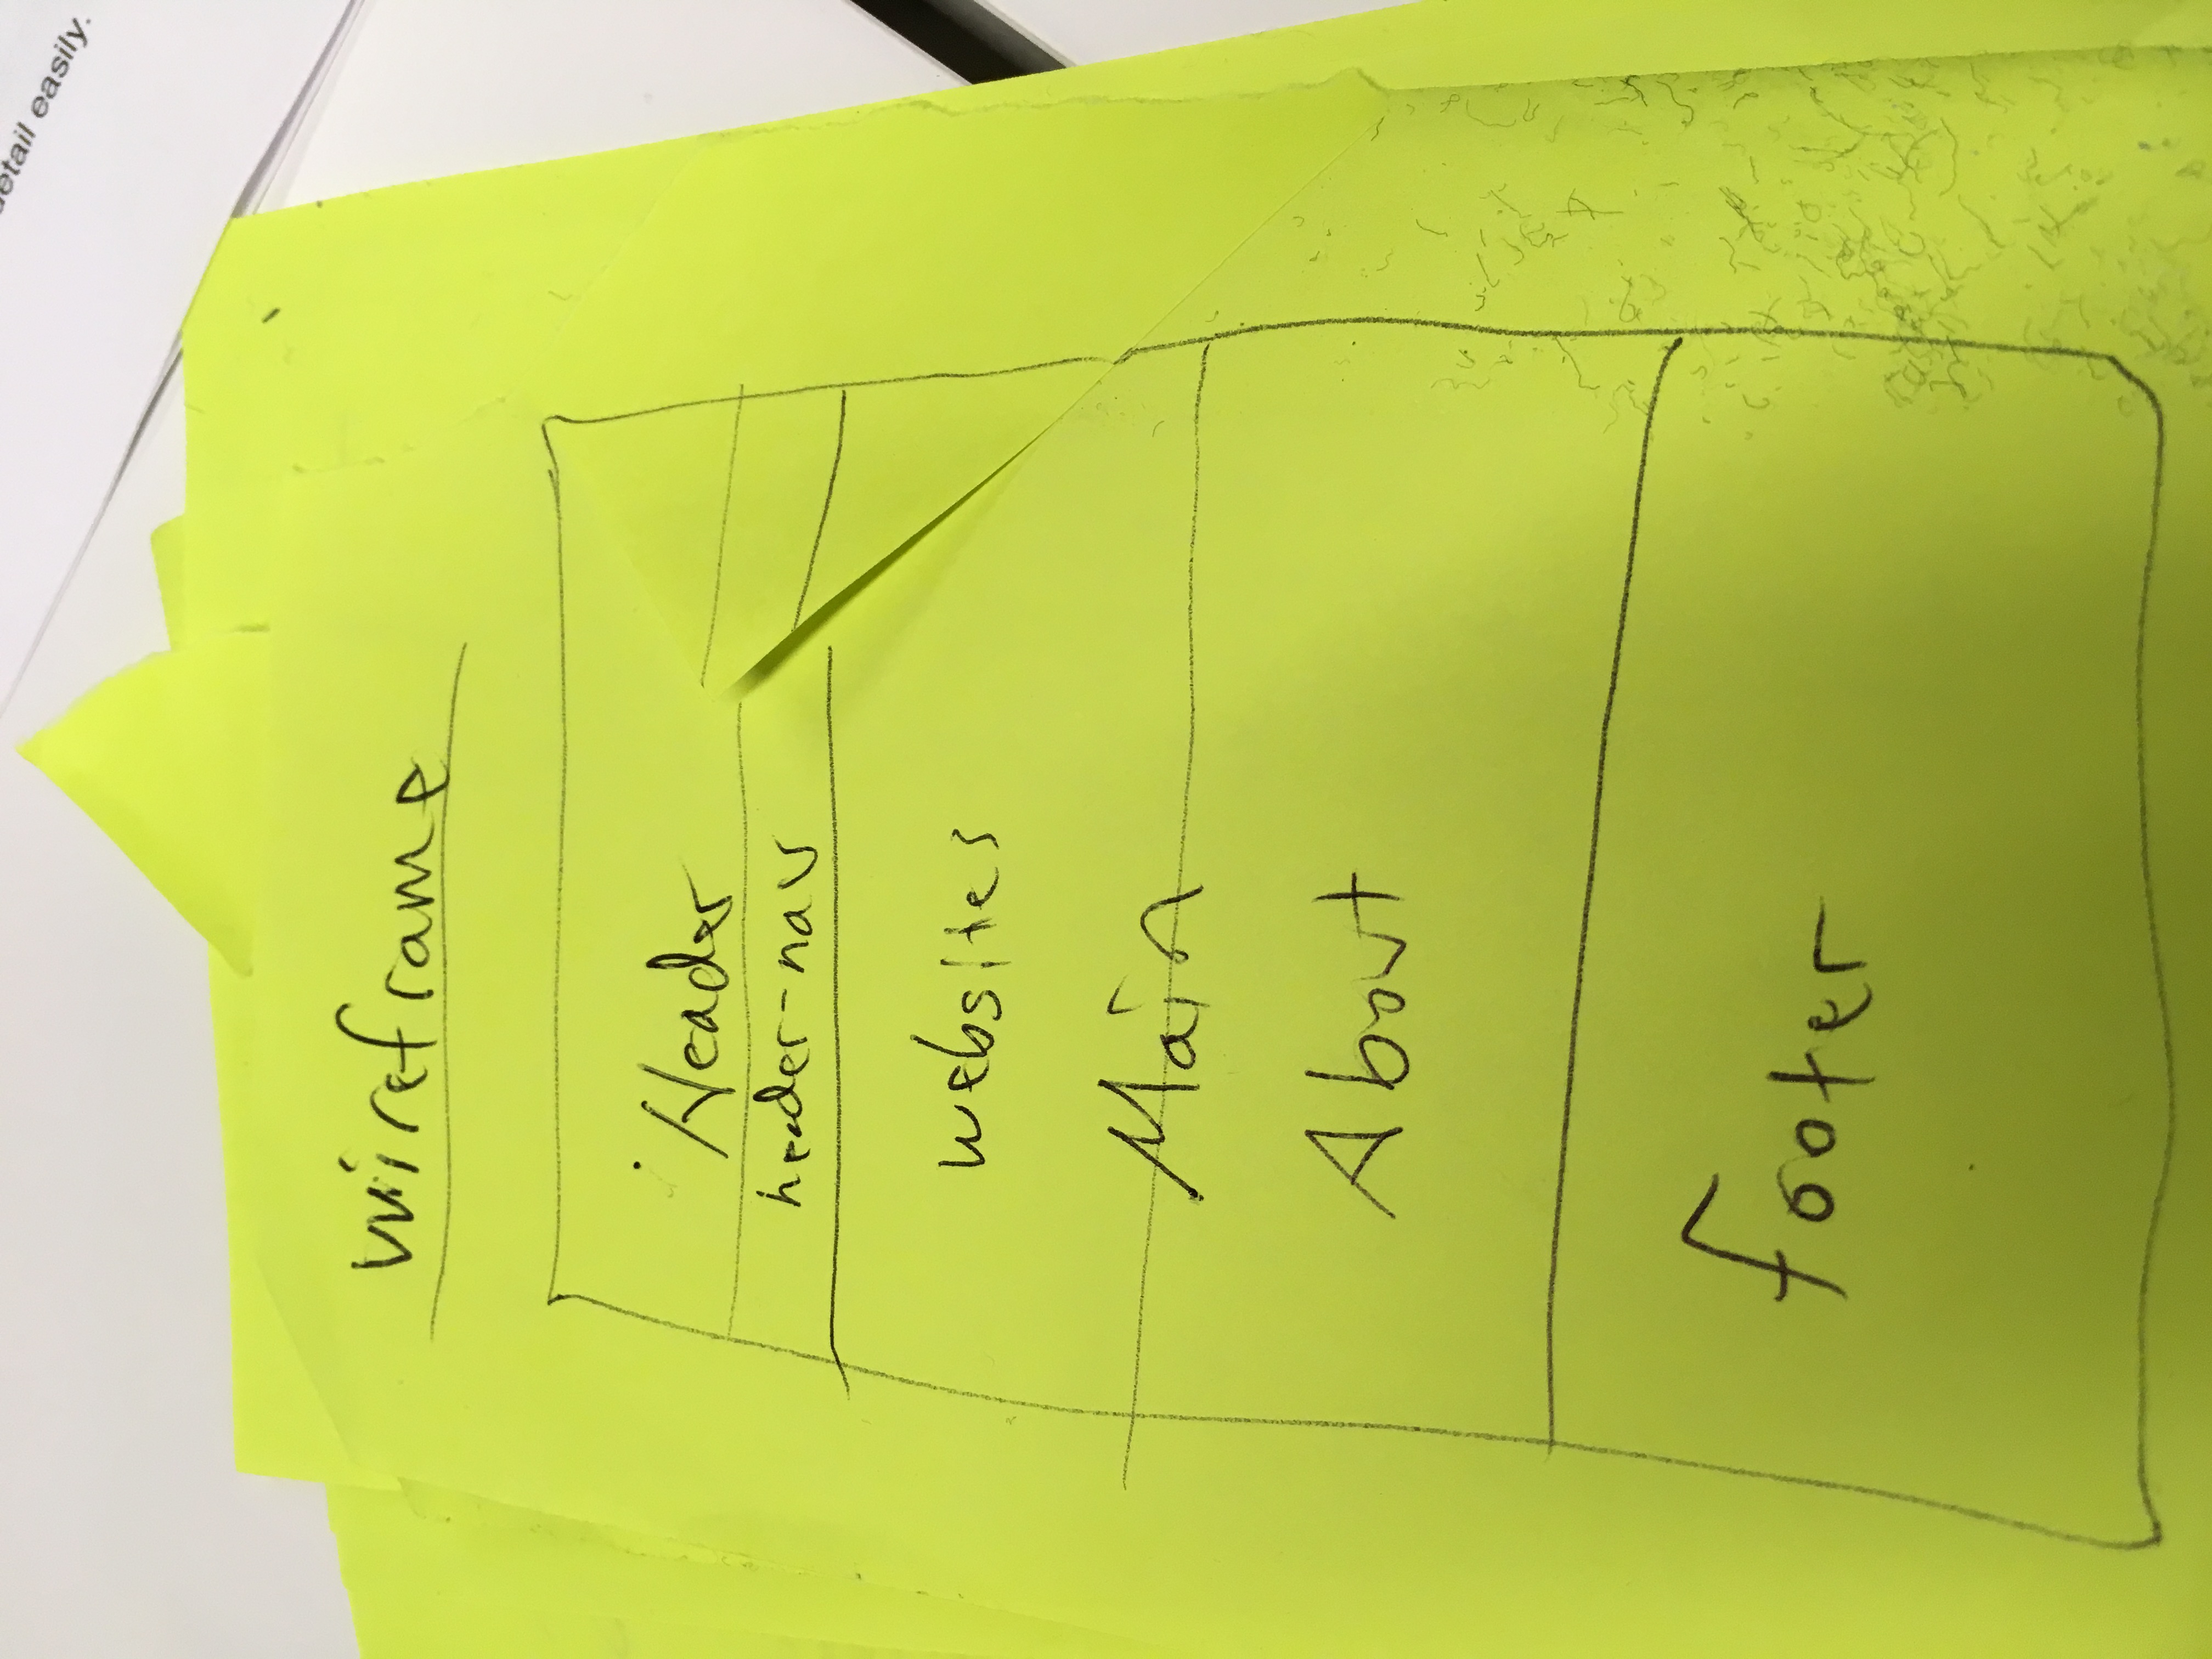 detail easily.
wireframe
Header
header-nav
websites
Main
About
footer